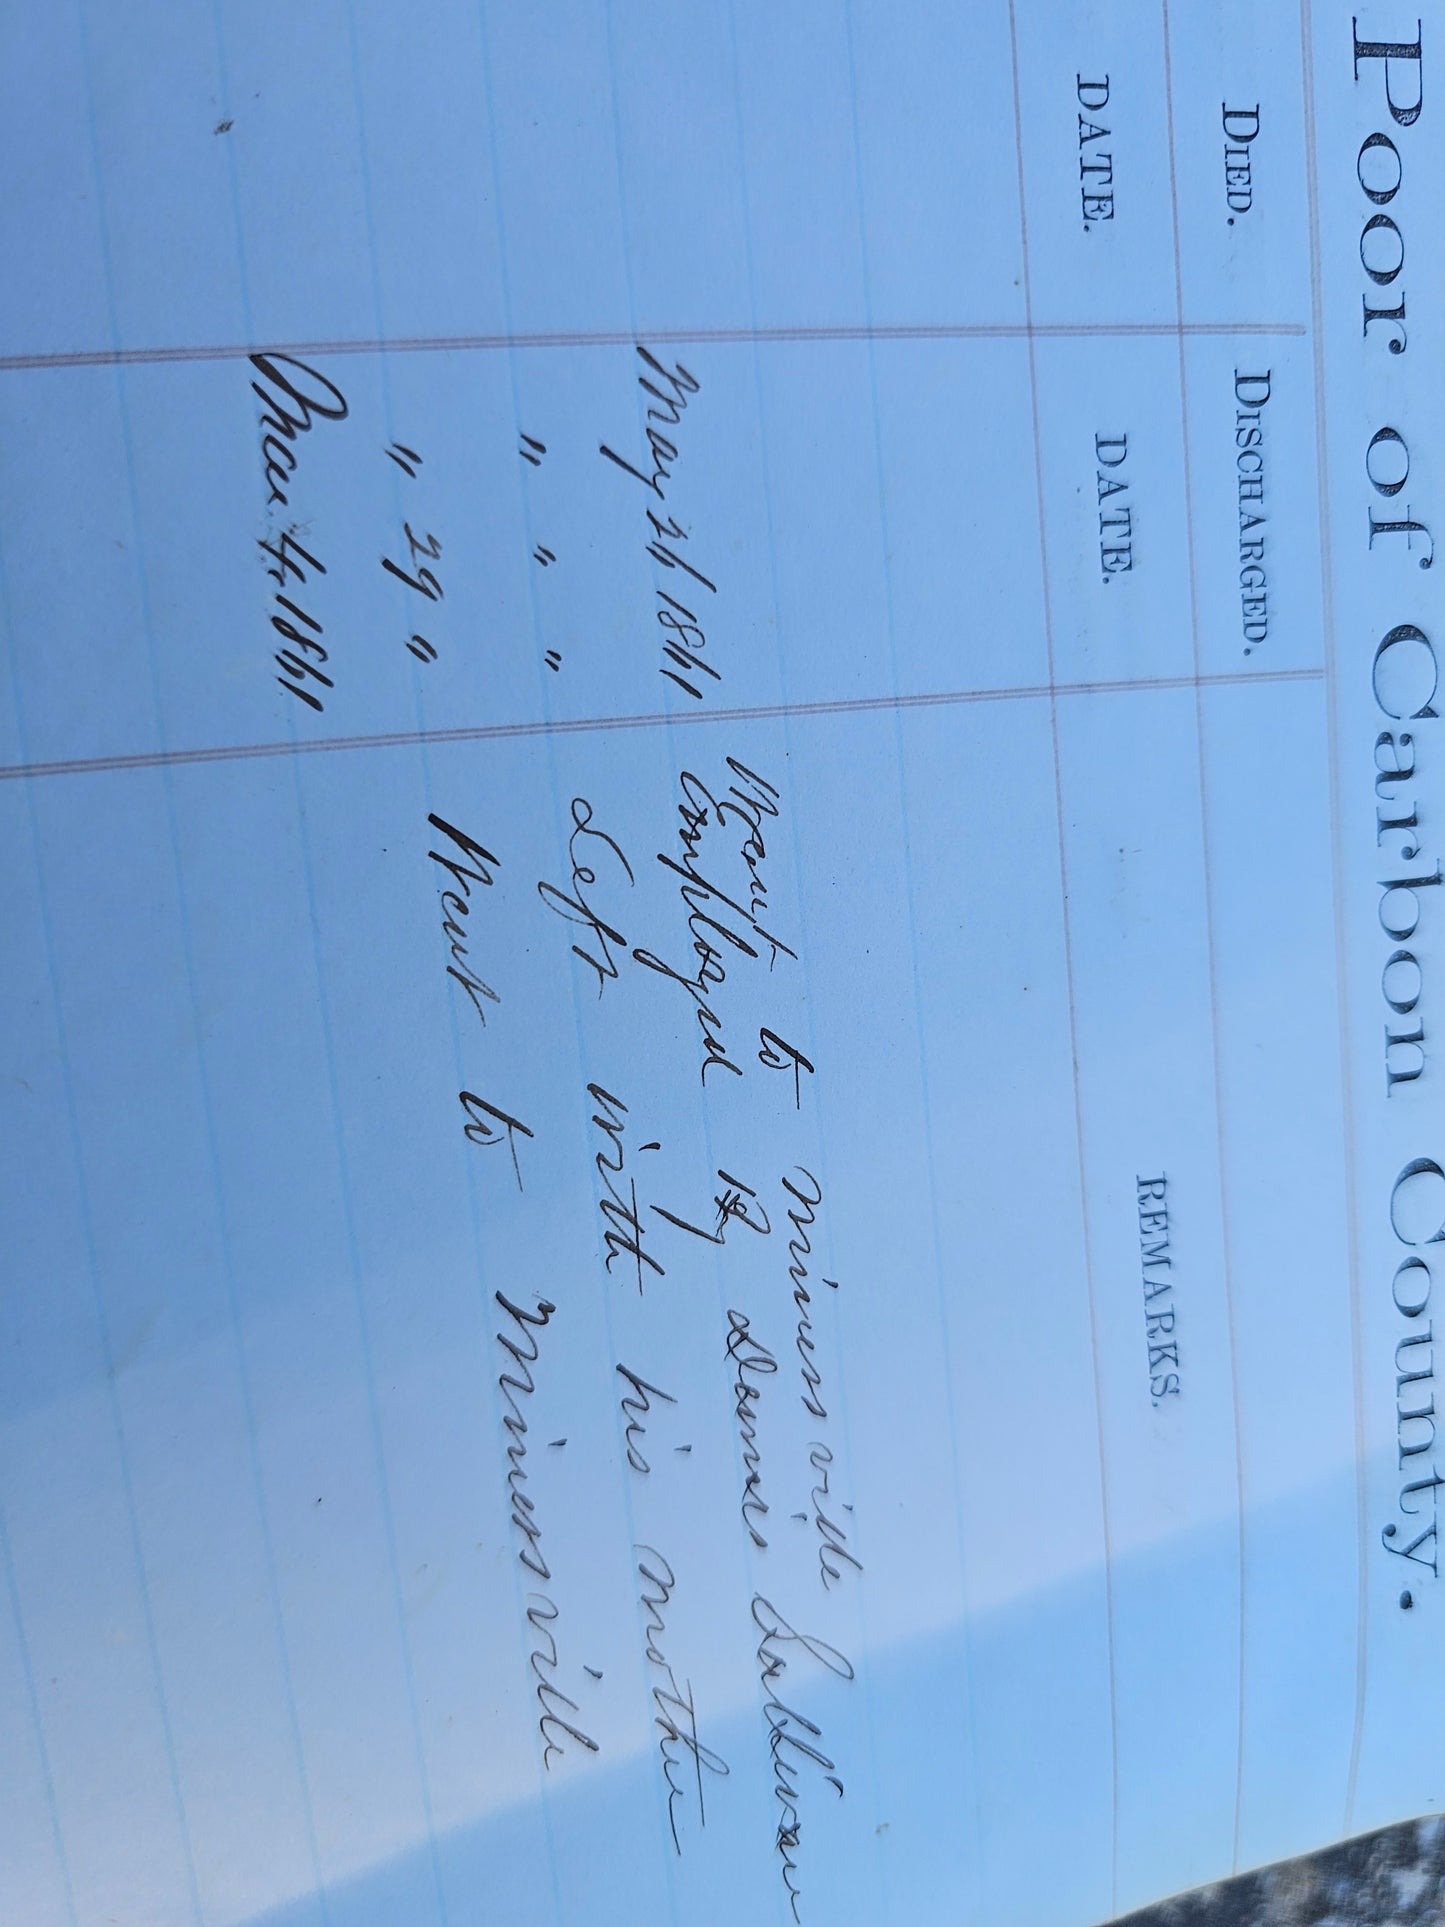 Poor of Carbon County.
DIED. DISCHARGED.
DATE. DATE. REMARKS.
Went to Miners ville
May 26 1861 employed By Sullivan
" " " Left with his mother
" 29 " Went to Minersville
4 1861